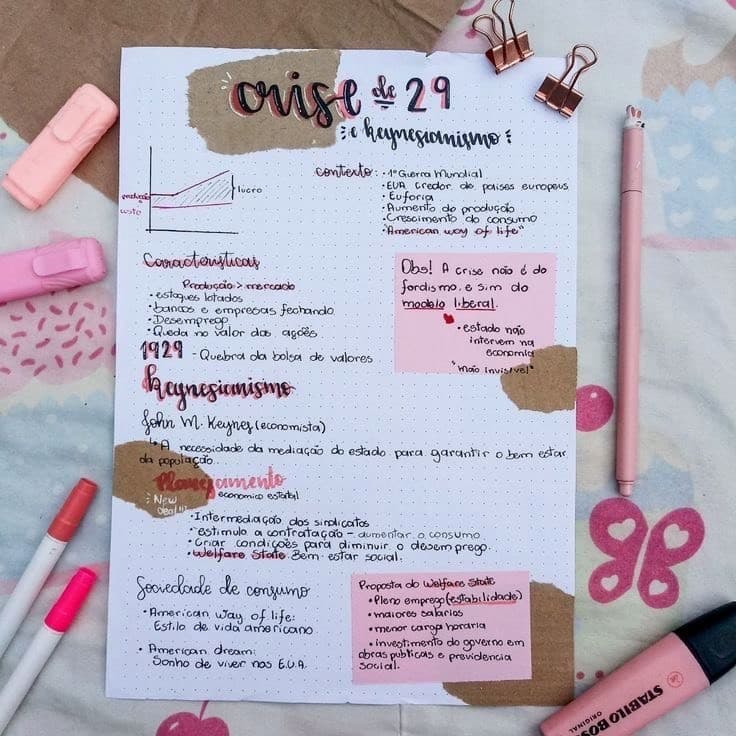 crise de 29
e keynesianismo
produção
custo
lucro
contexto: · 1ª Guerra Mundial
· EUA credor de países europeus
· Euforia
· Aumento de produção
· Crescimento do consumo
· "American way of life"
Características
Produção > mercado
· estoques lotados
· bancos e empresas fechando
· Desemprego
· Queda no valor das ações
1929 - Quebra da bolsa de valores
Obs! A crise não é do
fordismo, e sim do
modelo liberal.
· estado não
intervem na
economia
"mão invisível"
keynesianismo
John M. Keynes (economista)
↳ A necessidade da mediação do estado para garantir o bem estar
da população.
Planejamento
economico estatal
New
deal!!!
· Intermediação dos sindicatos
· estimulo a contratação - aumentar o consumo
· Criar condições para diminuir o desemprego.
· Welfare State: Bem estar social.
Sociedade de consumo
· American way of life:
Estilo de vida americano
· American dream:
Sonho de viver nos E.U.A.
Proposta do Welfare State
· Pleno emprego (estabilidade)
· maiores salários
· menor carga horaria
· investimento do governo em
obras publicas e previdencia
social.
STABILO BOSS
ORIGINAL